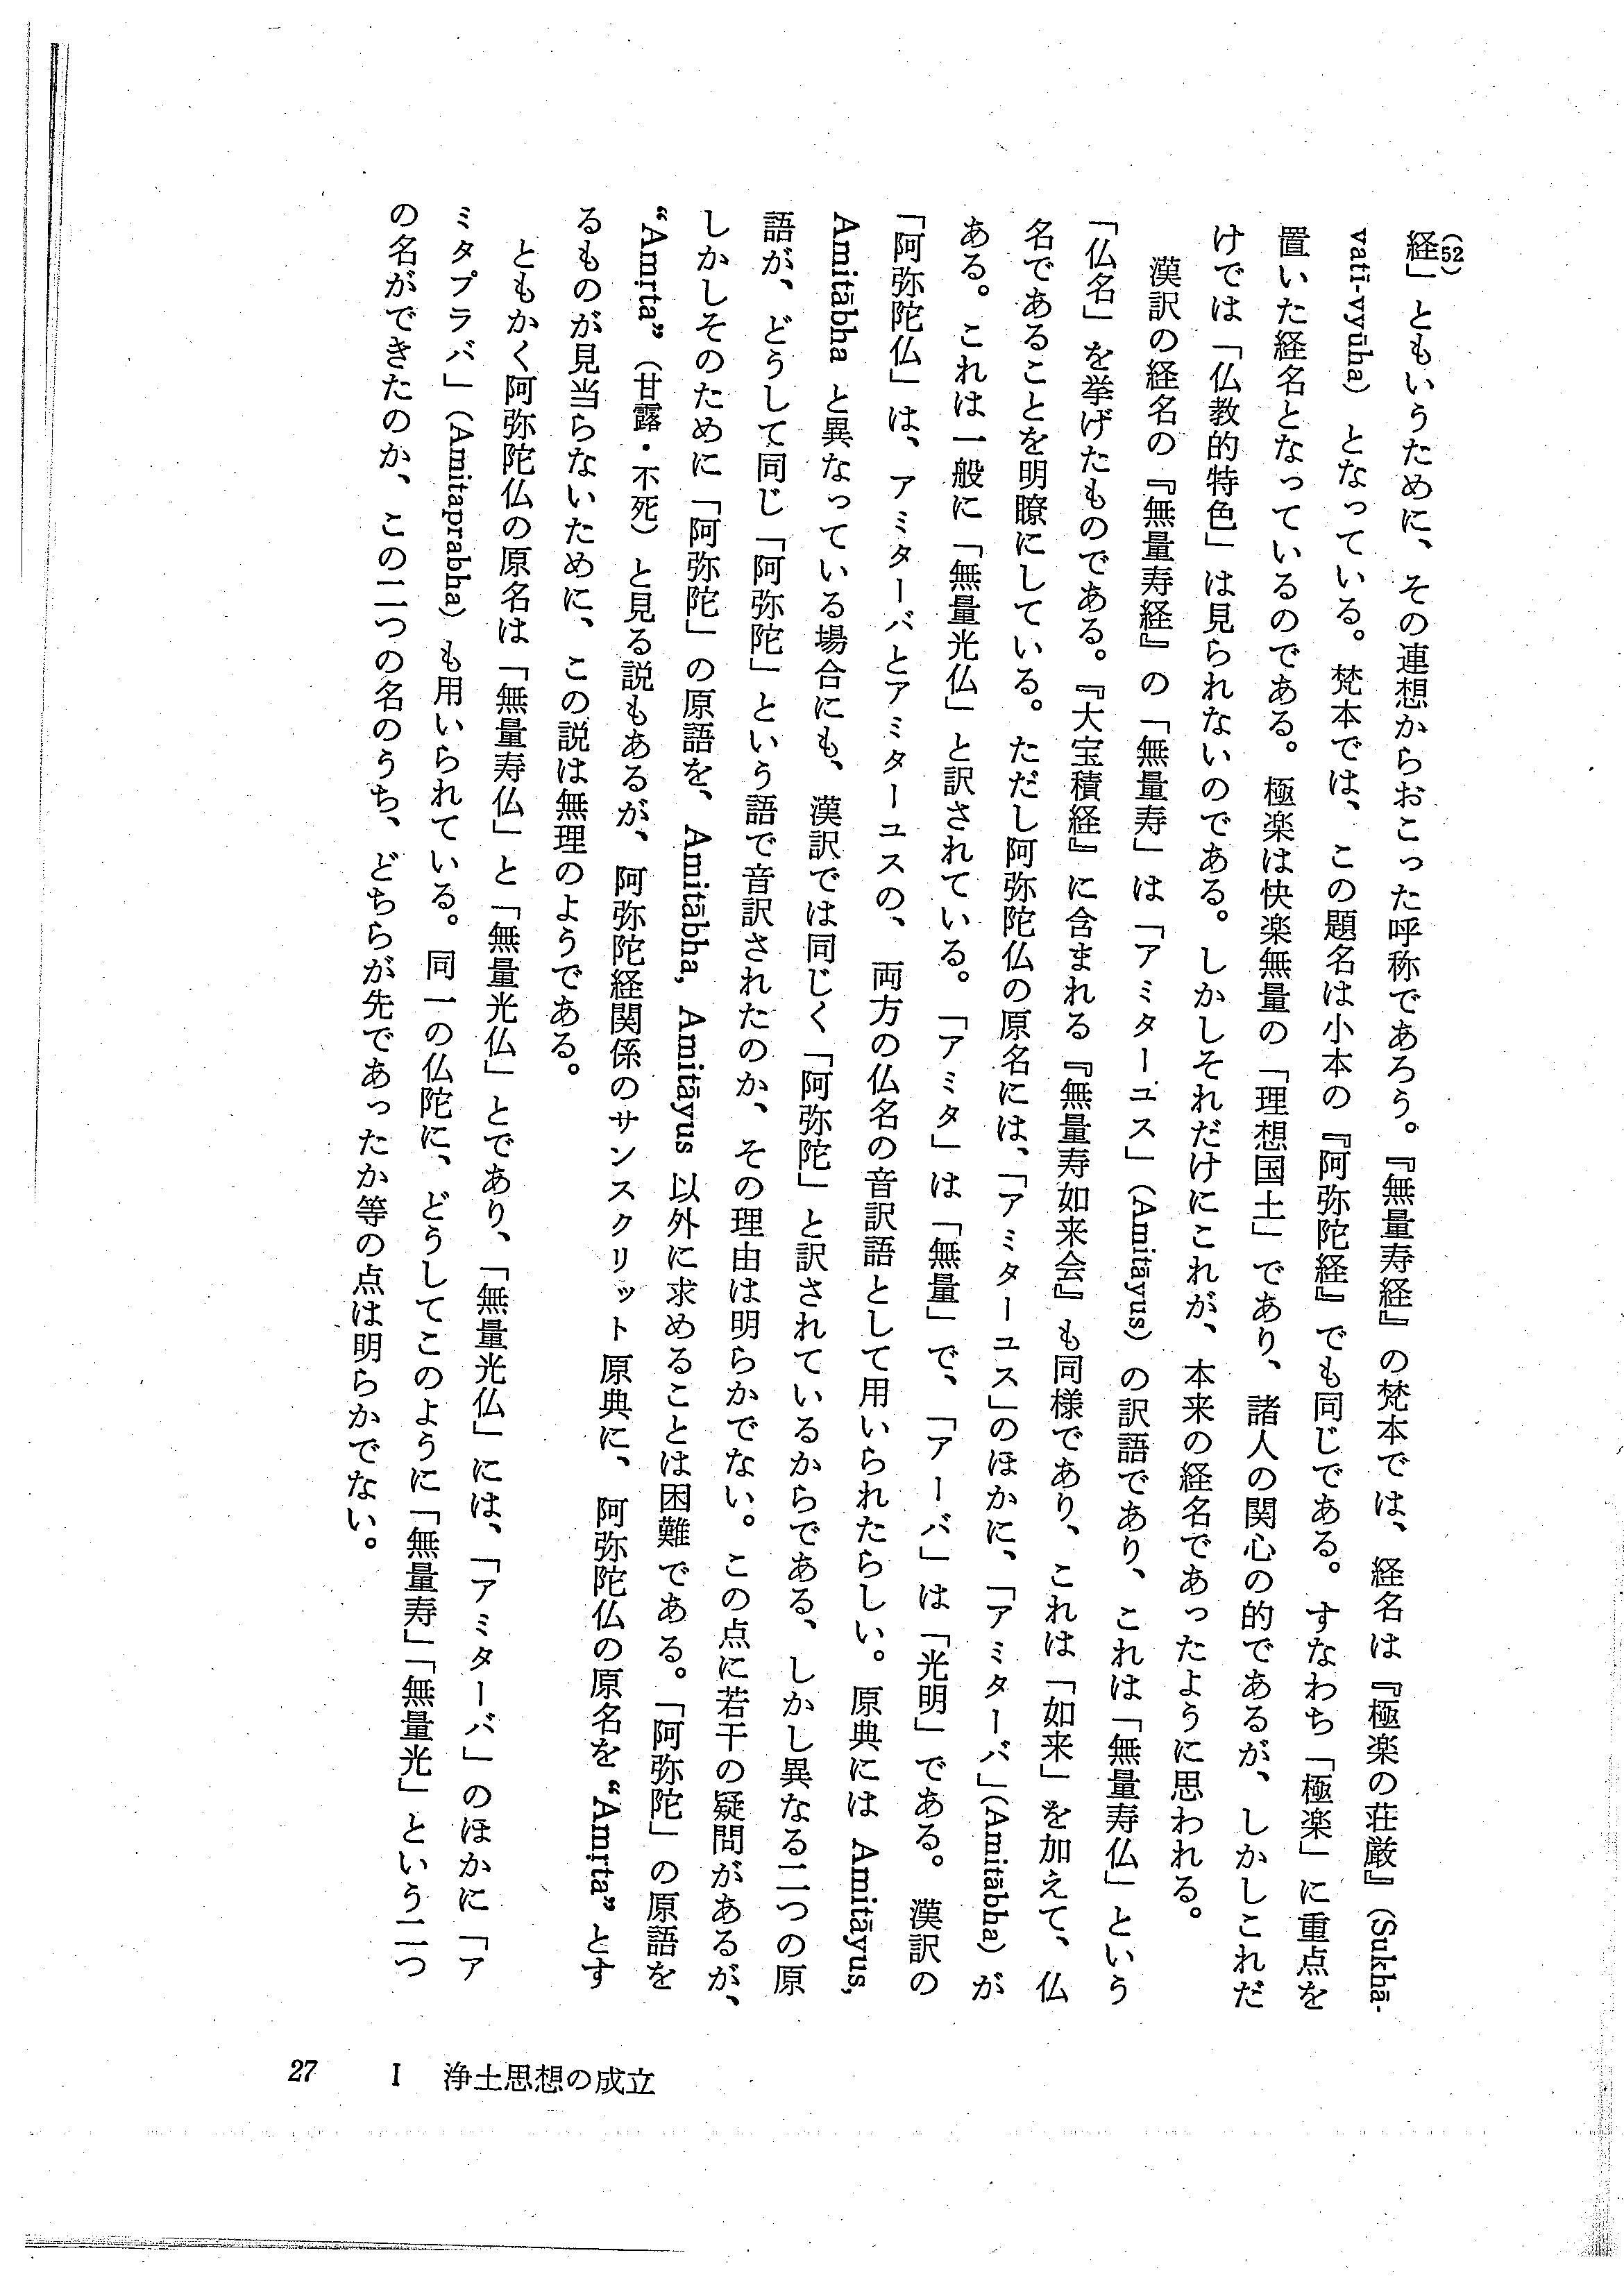 経」(52)ともいうために、その連想からおこった呼称であろう。『無量寿経』の梵本では、経名は『極楽の荘厳』(Sukhā-
vatī-vyūha) となっている。梵本では、この題名は小本の『阿弥陀経』でも同じである。すなわち「極楽」に重点を
置いた経名となっているのである。極楽は快楽無量の「理想国土」であり、諸人の関心の的であるが、しかしこれだ
けでは「仏教的特色」は見られないのである。しかしそれだけにこれが、本来の経名であったように思われる。
漢訳の経名の『無量寿経』の「無量寿」は「アミターユス」(Amitāyus) の訳語であり、これは「無量寿仏」という
「仏名」を挙げたものである。『大宝積経』に含まれる『無量寿如来会』も同様であり、これは「如来」を加えて、仏
名であることを明瞭にしている。ただし阿弥陀仏の原名には、「アミターユス」のほかに、「アミターバ」(Amitābha) が
ある。これは一般に「無量光仏」と訳されている。「アミタ」は「無量」で、「アーバ」は「光明」である。漢訳の
「阿弥陀仏」は、アミターバとアミターユスの、両方の仏名の音訳語として用いられたらしい。原典には Amitāyus,
Amitābha と異なっている場合にも、漢訳では同じく「阿弥陀」と訳されているからである、しかし異なる二つの原
語が、どうして同じ「阿弥陀」という語で音訳されたのか、その理由は明らかでない。この点に若干の疑問があるが、
しかしそのために「阿弥陀」の原語を、Amitābha, Amitāyus 以外に求めることは困難である。「阿弥陀」の原語を
“Amṛta”(甘露・不死)と見る説もあるが、阿弥陀経関係のサンスクリット原典に、阿弥陀仏の原名を “Amṛta” とす
るものが見当らないために、この説は無理のようである。
ともかく阿弥陀仏の原名は「無量寿仏」と「無量光仏」とであり、「無量光仏」には、「アミターバ」のほかに「ア
ミタプラバ」(Amitaprabha) も用いられている。同一の仏陀に、どうしてこのように「無量寿」「無量光」という二つ
の名ができたのか、この二つの名のうち、どちらが先であったか等の点は明らかでない。
27 I 浄土思想の成立